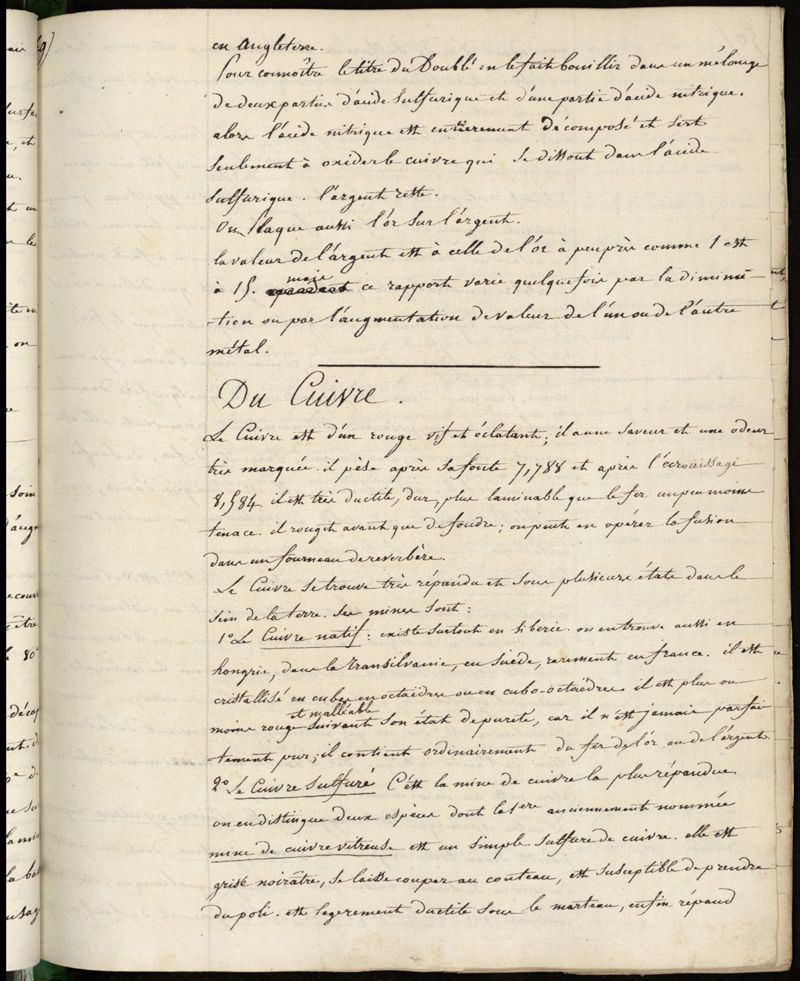 en Angleterre.
Pour connoître le titre du Doublé on le fait bouillir dans un mélange
de deux parties d'acide sulfurique et d'une partie d'acide nitrique.
alors l'acide nitrique est entièrement décomposé et sert
seulement à oxider le cuivre qui se dissout dans l'acide
sulfurique. l'argent reste.
On plaque aussi l'or sur l'argent.
la valeur de l'argent est à celle de l'or à peu près comme 1 est
à 15. mais ce rapport varie quelquefois par la diminu-
-tion ou par l'augmentation de valeur de l'un ou de l'autre
métal.
Du Cuivre.
Le Cuivre est d'un rouge vif et éclatant; il a une saveur et une odeur
très marquée. il pèse après sa fonte 7,788 et après l'écrouissage
8,584 il est très ductile, dur, plus laminable que le fer un peu moins
tenace. il rougit avant que de fondre; on peut en opérer la fusion
dans un fourneau de reverbère.
Le Cuivre se trouve très répandu et sous plusieurs états dans le
sein de la terre. Ses mines sont:
1° Le Cuivre natif: existe surtout en Siberie. on en trouve aussi en
hongrie, dans la transilvanie, en suède, rarement en france. il est
cristallisé en cubes en octaèdres ou en cubo-octaèdres il est plus ou
moins rouge et malléable suivant son état de pureté, car il n'est jamais parfai-
tement pur; il contient ordinairement du fer de l'or ou de l'argent.
2° Le Cuivre sulfuré C'est la mine de cuivre la plus répandue.
on en distingue deux espèces dont la 1ere anciennement nommée
mine de cuivre vitreuse est un simple sulfure de cuivre. elle est
grise noirâtre, se laisse couper au couteau, est susceptible de prendre
du poli. est legerement ductile sous le marteau, enfin répand